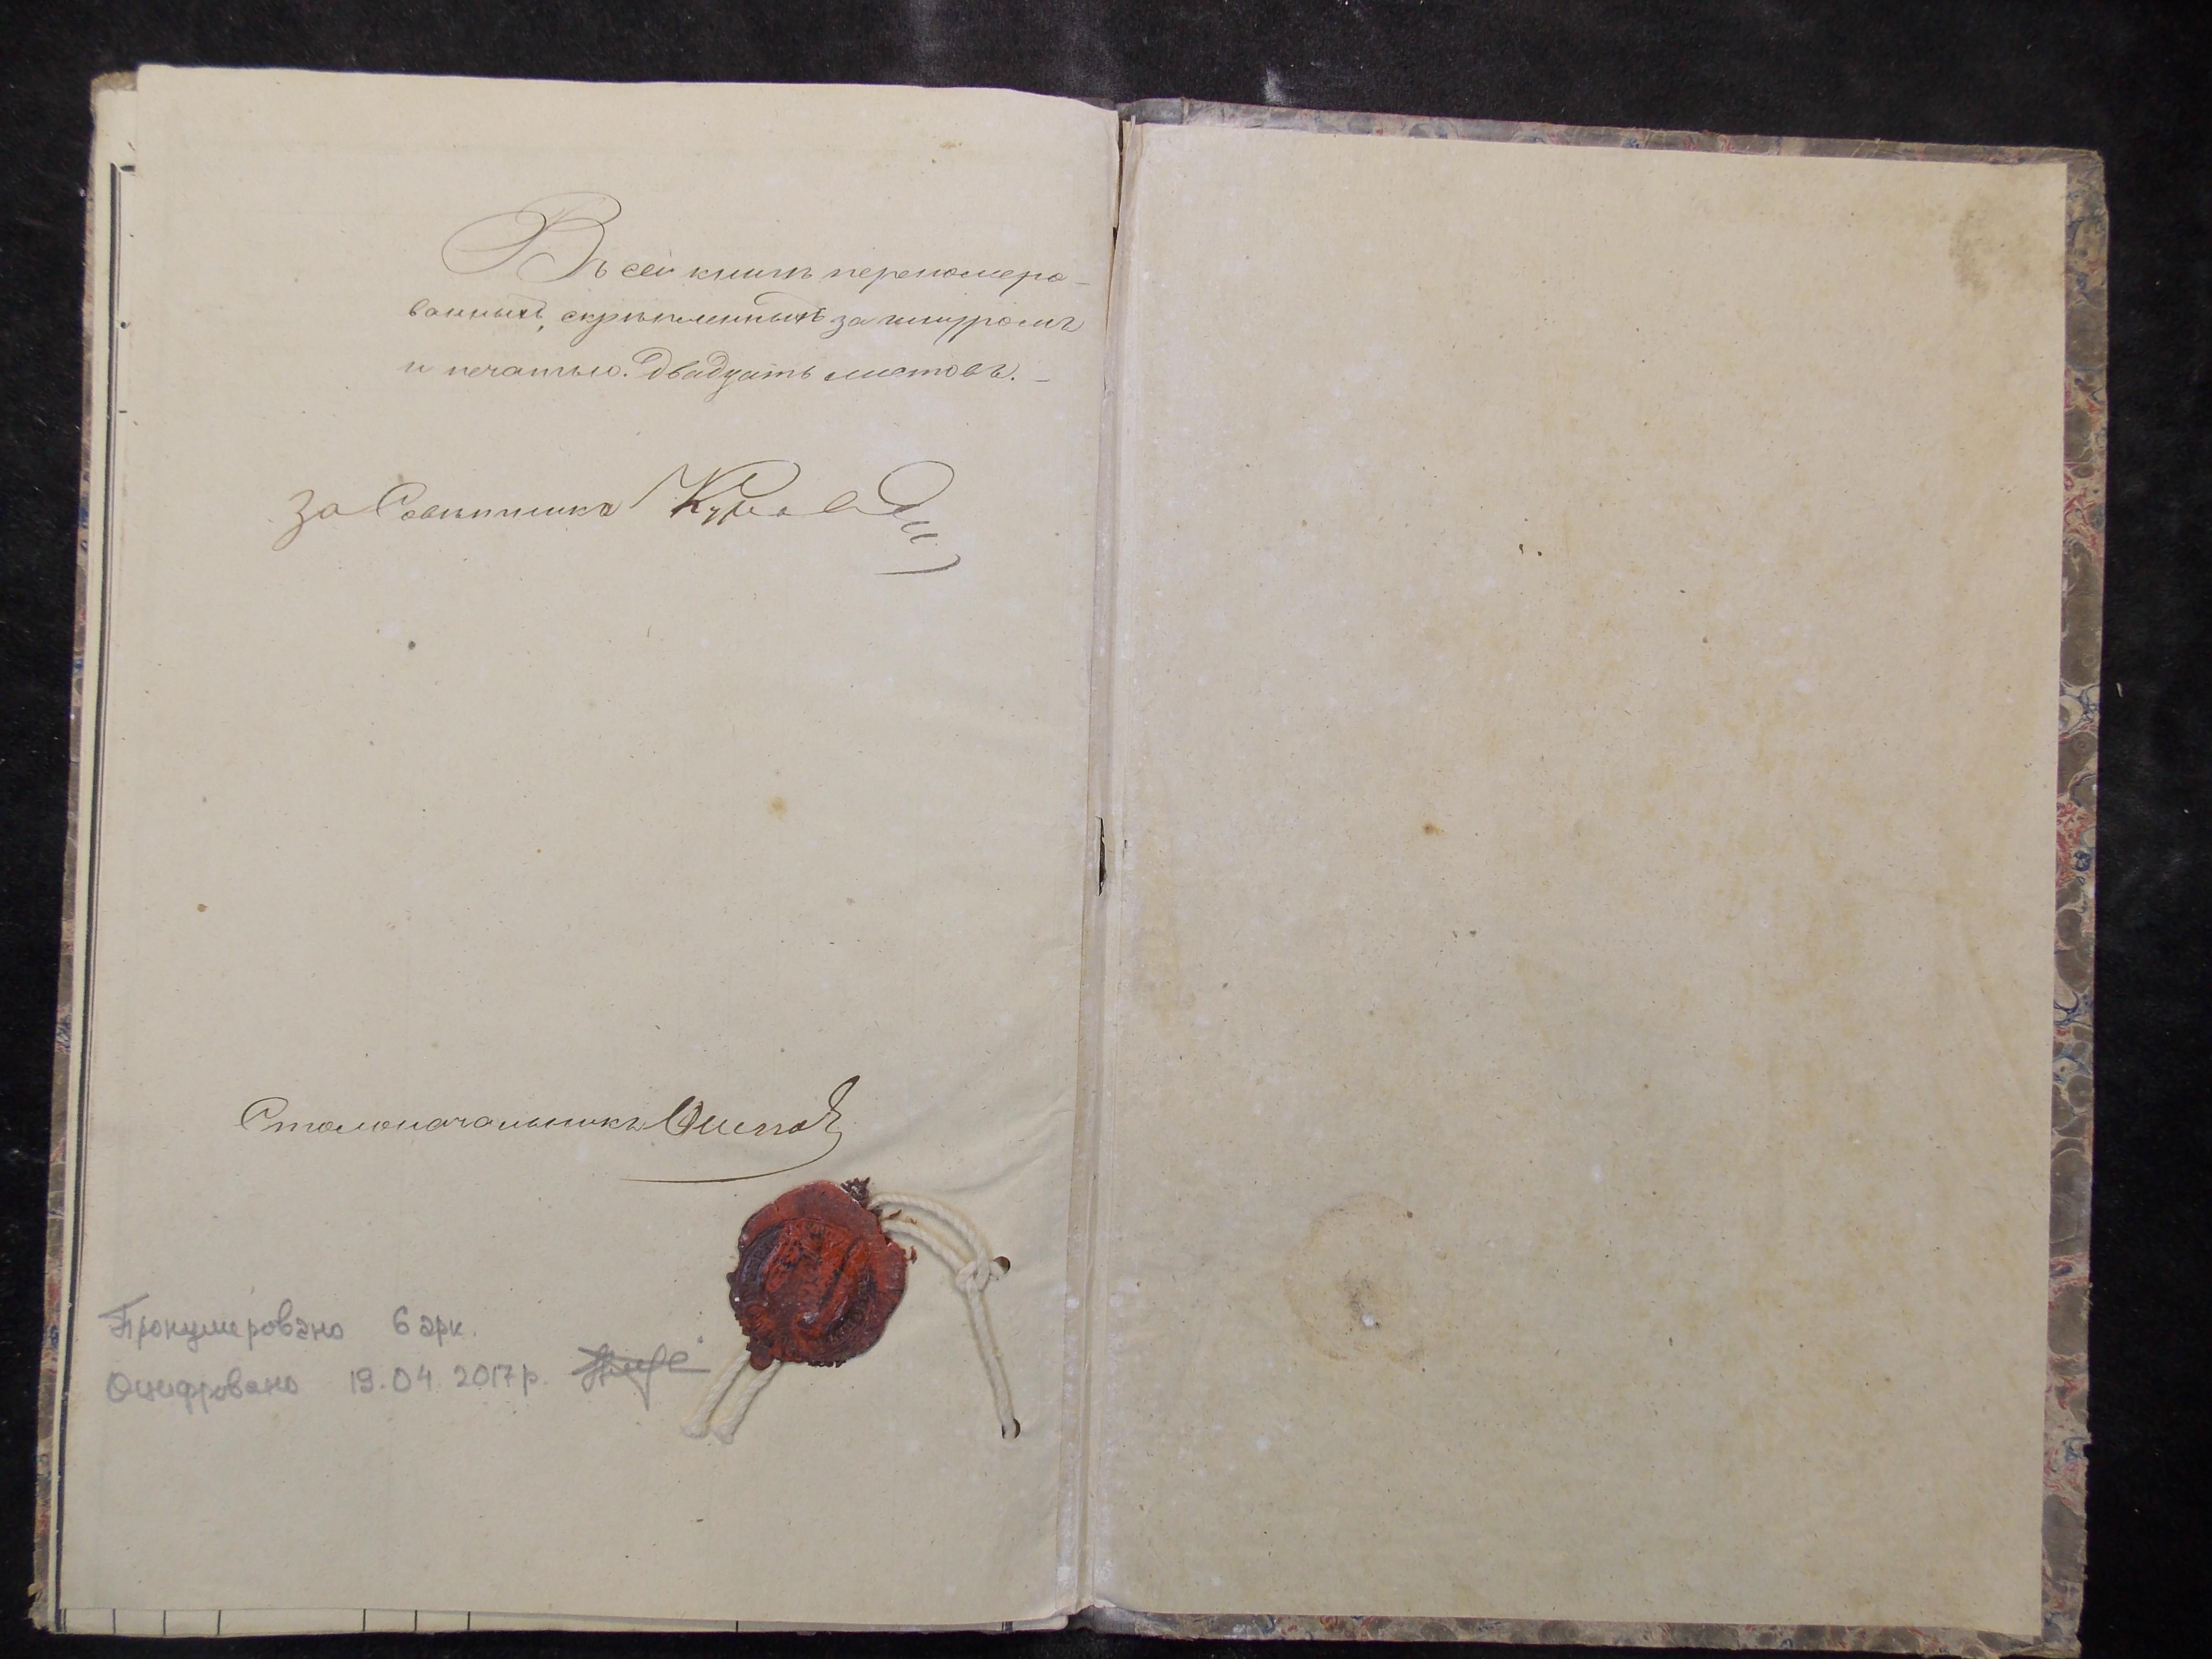 Въ сей книгѣ перенумеро-
ванныхъ, скрѣпленныхъ за шнуромъ
и печатью. двадцать листовъ. –
За Совѣтника
Столоначальникъ Осиповъ
Пронумеровано 6 арк.
Оцифровано 19.04.2017р.